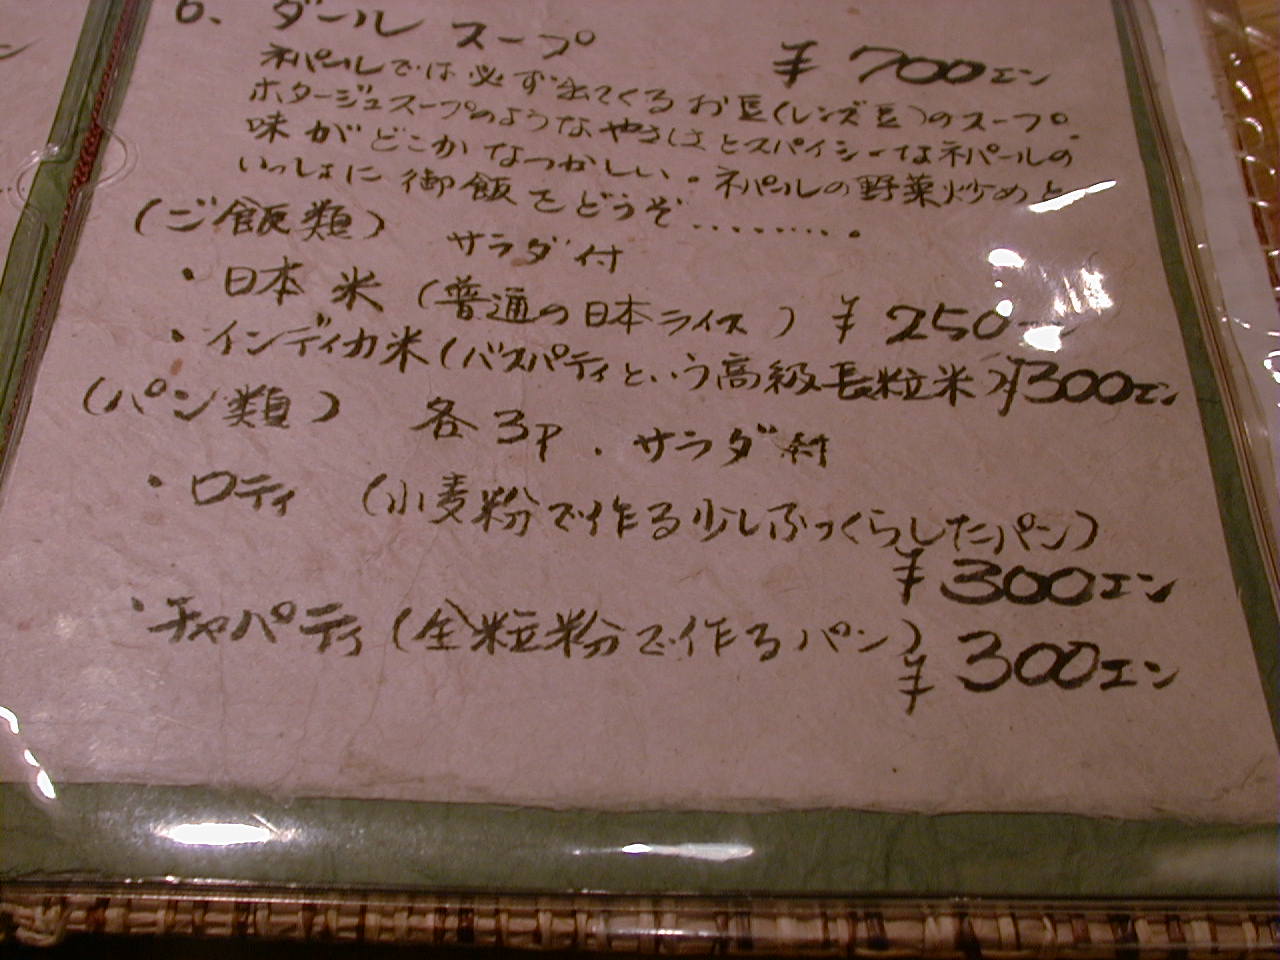 6. ダール スープ ¥700エン
ネパールでは必ず出てくるお豆(レンズ豆)のスープ。
ポタージュスープのようなやさしさとスパイシーなネパールの
味がどこかなつかしい。ネパールの野菜炒めと
いっしょに御飯をどうぞ.........。
(ご飯類) サラダ付
・日本米(普通の日本ライス) ¥250エン
・インディカ米(バスパティという高級長粒米)¥300エン
(パン類) 各3P. サラダ付
・ロティ (小麦粉で作る少しふっくらしたパン)
¥300エン
・チャパティ(全粒粉で作るパン)
¥300エン